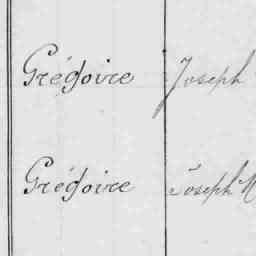 Grégoire Joseph
Grégoire Joseph